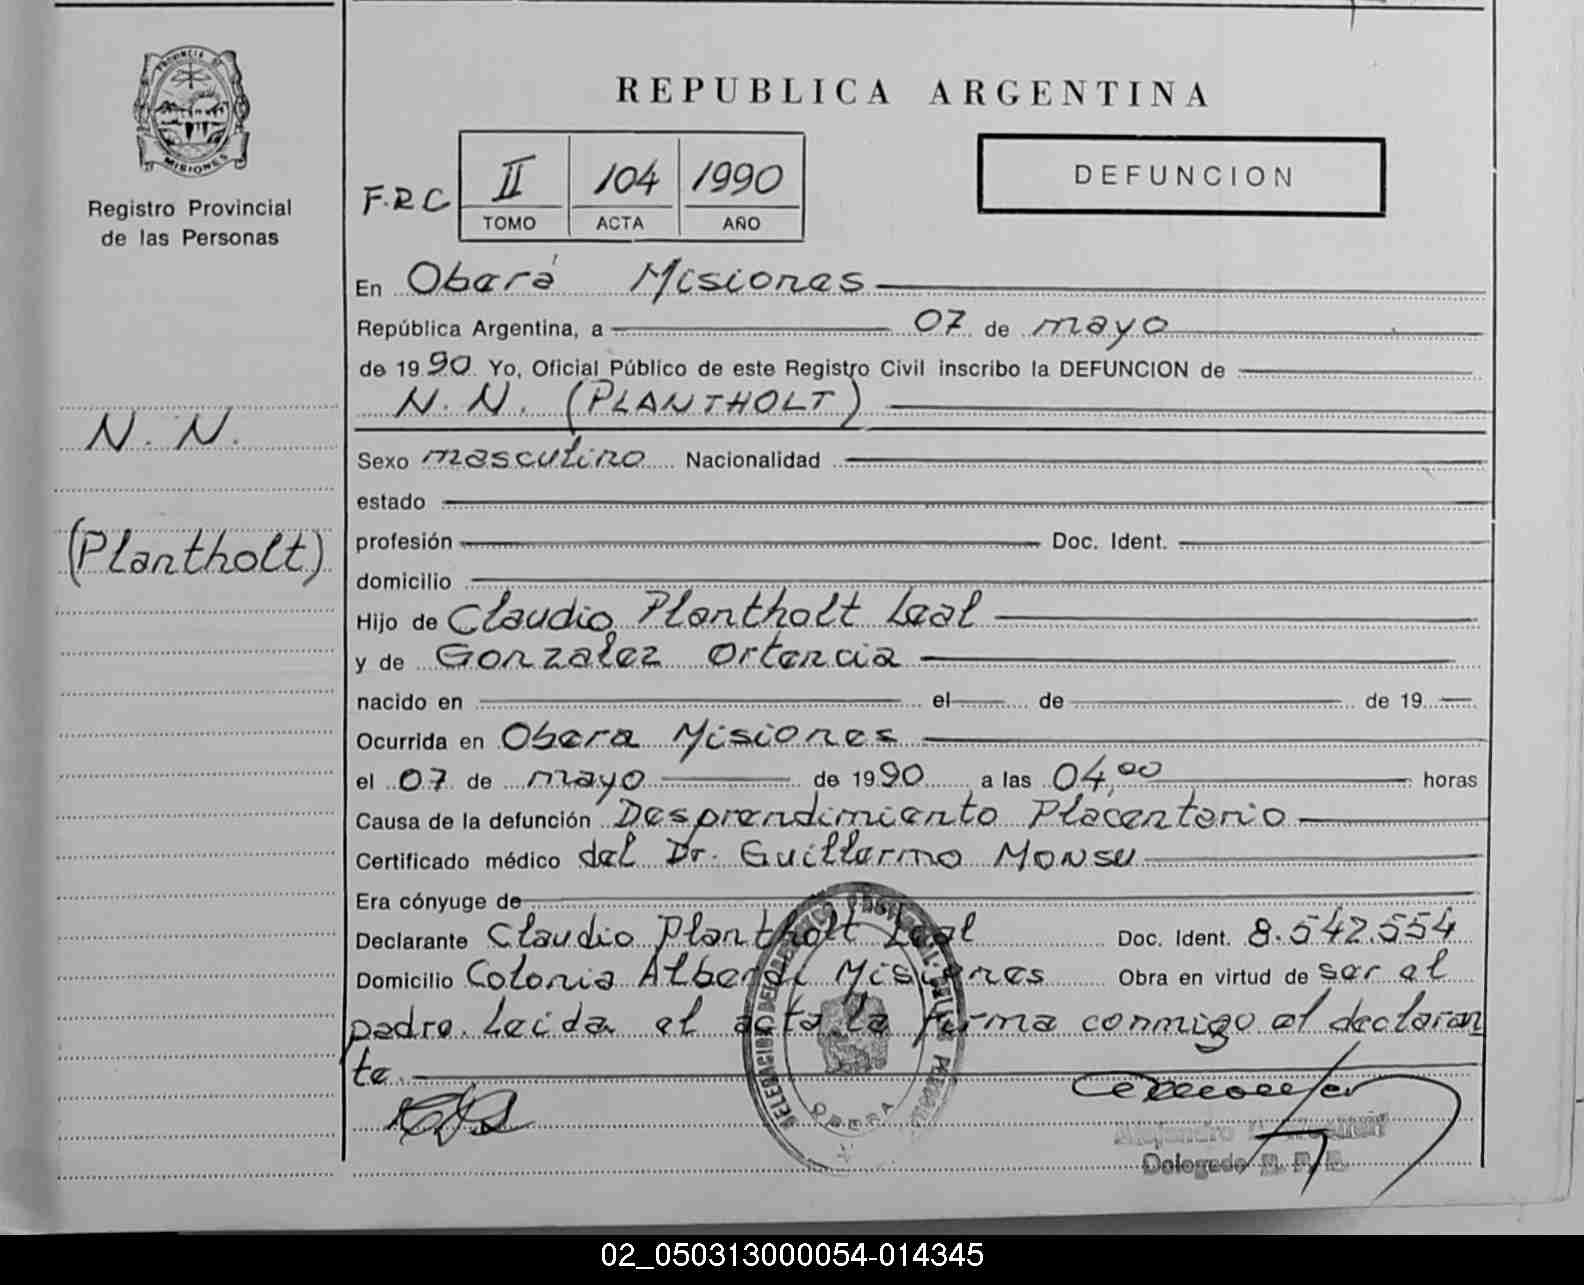 PROVINCIA DE
MISIONES
Registro Provincial
de las Personas
N. N.
(Plantholt)
REPUBLICA ARGENTINA
F.R.C
II 104 1990
TOMO ACTA AÑO
DEFUNCION
En Oberá Misiones
República Argentina, a 07 de mayo
de 1990 Yo, Oficial Público de este Registro Civil inscribo la DEFUNCION de
N. N. (PLANTHOLT)
Sexo masculino Nacionalidad
estado
profesión Doc. Ident.
domicilio
Hijo de Claudio Plantholt Leal
y de Gonzalez Ortencia
nacido en el de de 19
Ocurrida en Obera Misiones
el 07 de mayo de 1990 a las 04,00 horas
Causa de la defunción Desprendimiento Placentario
Certificado médico del Dr. Guillermo Monsu
Era cónyuge de
Declarante Claudio Plantholt Leal Doc. Ident. 8.542.554
Domicilio Colonia Alberdi Misiones Obra en virtud de ser el
padre. Leida el acta la firma conmigo el declaran
te.
OBERA
Alejandro
Delegado R. P. P.
02_050313000054-014345